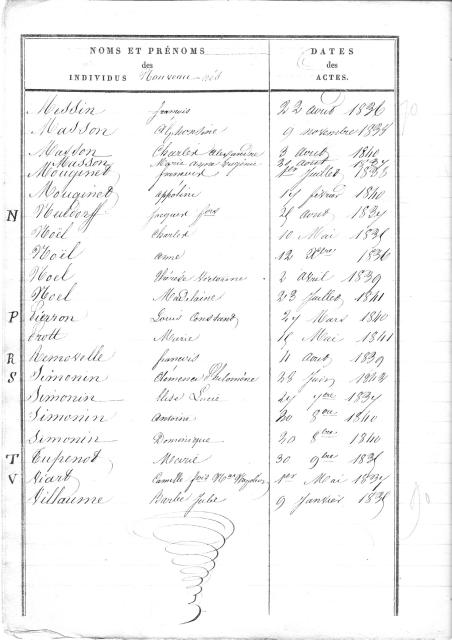 NOMS ET PRÉNOMS
des
INDIVIDUS Nouveau-nés
DATES
des
ACTES.
Messin françois 22 août 1836
Masson Alphonsine 9 novembre 1838
Masson Charles Alexandre 3 août 1840
Masson Marie Anne août
Mouginet 1er Juillet 1838
Mouginet appoline 14 février 1840
N août 1837
Noël Charles 10 Mai 1838
Noël anne 12 Xbre 1836
Noel thérèse 2 avril 1839
Noel Madelaine 23 Juillet 1841
P Pierron Louis Constant 27 Mars 1840
Marie Mai 1841
R Removille françois 4 août 1839
S Simonin Clémence Philomène 28 Juin
Simonin Elise Lucie 27 7bre 1837
Simonin Antoine 20 8bre 1840
Simonin Dominique 20 8bre 1840
T Tupenot Marie 30 9bre 1838
V Viart Camille 1er Mai 1837
Villaume Barbe Julie 9 Janvier 1838